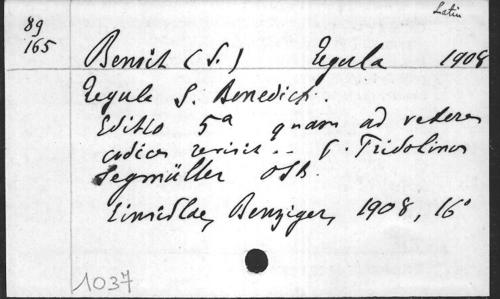 Latin
89
165
Benoit (S.) Regula 1908
Regula S. Benedicti.
Editio 5ª quam ad veteres
codices revisit .. P. Fridolinus
Segmüller OSB.
Einsidlae, Benziger, 1908, 16°
1037